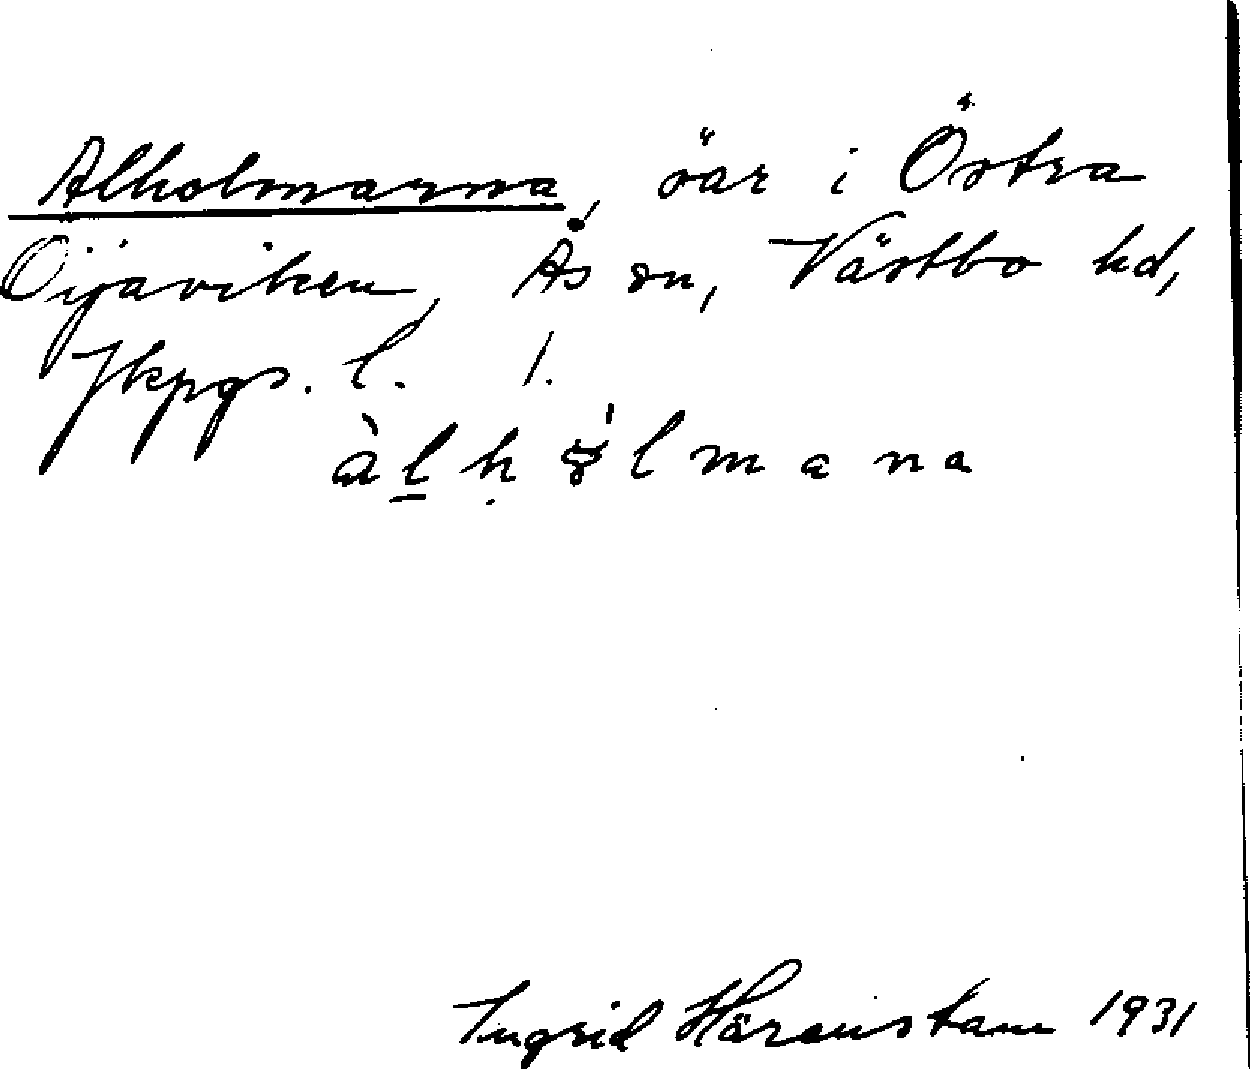 Alholmarna, öar i Östra
Oijaviken, Ås sn, Västbo hd,
Jkpgs. l. 1.
Ingrid Härenstam 1931